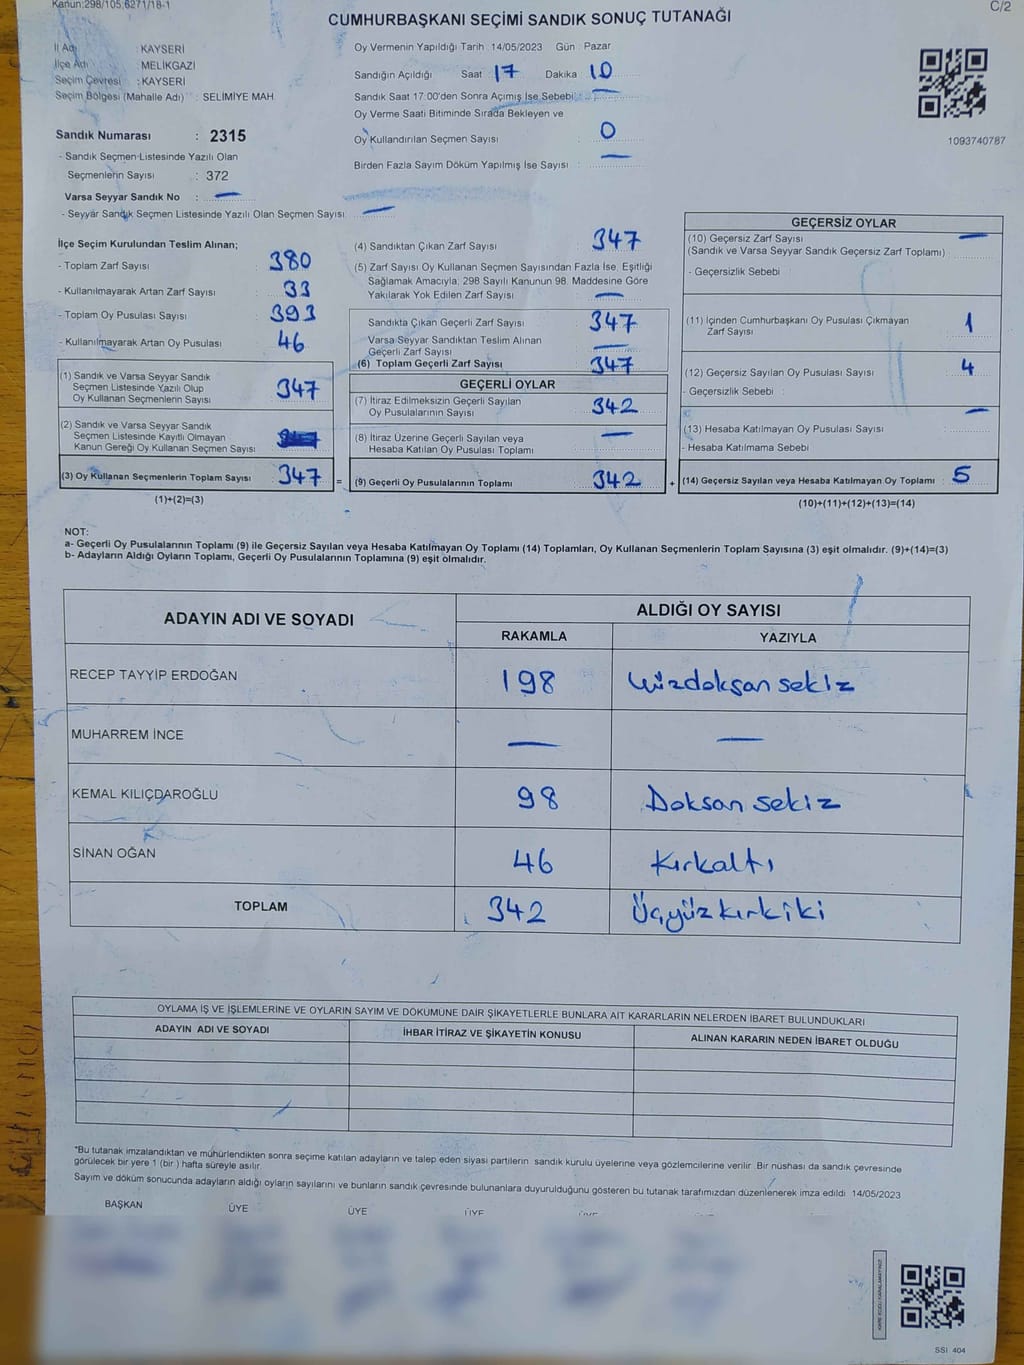 Kanun:298/105;6271/18-1
C/2
CUMHURBAŞKANI SEÇİMİ SANDIK SONUÇ TUTANAĞI
İl Adı : KAYSERİ
İlçe Adı : MELİKGAZİ
Seçim Çevresi : KAYSERİ
Seçim Bölgesi (Mahalle Adı) : SELİMİYE MAH.
Oy Vermenin Yapıldığı Tarih : 14/05/2023 Gün : Pazar
Sandığın Açıldığı Saat 17 Dakika 10
Sandık Saat 17:00'den Sonra Açımış İse Sebebi : —
Oy Verme Saati Bitiminde Sırada Bekleyen ve
Oy Kullandırılan Seçmen Sayısı : 0
Birden Fazla Sayım Döküm Yapılmış İse Sayısı : —
1093740787
Sandık Numarası : 2315
- Sandık Seçmen Listesinde Yazılı Olan
Seçmenlerin Sayısı : 372
Varsa Seyyar Sandık No : —
- Seyyar Sandık Seçmen Listesinde Yazılı Olan Seçmen Sayısı : —
İlçe Seçim Kurulundan Teslim Alınan;
- Toplam Zarf Sayısı : 380
- Kullanılmayarak Artan Zarf Sayısı : 33
- Toplam Oy Pusulası Sayısı : 393
- Kullanılmayarak Artan Oy Pusulası : 46
(1) Sandık ve Varsa Seyyar Sandık
Seçmen Listesinde Yazılı Olup
Oy Kullanan Seçmenlerin Sayısı : 347
(2) Sandık ve Varsa Seyyar Sandık
Seçmen Listesinde Kayıtlı Olmayan
Kanun Gereği Oy Kullanan Seçmen Sayısı :
(3) Oy Kullanan Seçmenlerin Toplam Sayısı : 347
(1)+(2)=(3)
=
(4) Sandıktan Çıkan Zarf Sayısı : 347
(5) Zarf Sayısı Oy Kullanan Seçmen Sayısından Fazla İse, Eşitliği
Sağlamak Amacıyla; 298 Sayılı Kanunun 98. Maddesine Göre
Yakılarak Yok Edilen Zarf Sayısı : —
Sandıkta Çıkan Geçerli Zarf Sayısı : 347
Varsa Seyyar Sandıktan Teslim Alınan
Geçerli Zarf Sayısı : —
(6) Toplam Geçerli Zarf Sayısı : 347
GEÇERLİ OYLAR
(7) İtiraz Edilmeksizin Geçerli Sayılan
Oy Pusulalarının Sayısı : 342
(8) İtiraz Üzerine Geçerli Sayılan veya
Hesaba Katılan Oy Pusulası Toplamı : —
(9) Geçerli Oy Pusulalarının Toplamı : 342
+
GEÇERSİZ OYLAR
(10) Geçersiz Zarf Sayısı : —
(Sandık ve Varsa Seyyar Sandık Geçersiz Zarf Toplamı)
- Geçersizlik Sebebi :
(11) İçinden Cumhurbaşkanı Oy Pusulası Çıkmayan
Zarf Sayısı : 1
(12) Geçersiz Sayılan Oy Pusulası Sayısı : 4
- Geçersizlik Sebebi :
(13) Hesaba Katılmayan Oy Pusulası Sayısı : —
- Hesaba Katılmama Sebebi
(14) Geçersiz Sayılan veya Hesaba Katılmayan Oy Toplamı : 5
(10)+(11)+(12)+(13)=(14)
NOT:
a- Geçerli Oy Pusulalarının Toplamı (9) ile Geçersiz Sayılan veya Hesaba Katılmayan Oy Toplamı (14) Toplamları, Oy Kullanan Seçmenlerin Toplam Sayısına (3) eşit olmalıdır. (9)+(14)=(3)
b- Adayların Aldığı Oyların Toplamı, Geçerli Oy Pusulalarının Toplamına (9) eşit olmalıdır.
ADAYIN ADI VE SOYADI ALDIĞI OY SAYISI
RAKAMLA YAZIYLA
RECEP TAYYİP ERDOĞAN 198 Yüzdoksan sekiz
MUHARREM İNCE — —
KEMAL KILIÇDAROĞLU 98 Doksan sekiz
SİNAN OĞAN 46 Kırkaltı
TOPLAM 342 Üçyüz kırk iki
OYLAMA İŞ VE İŞLEMLERİNE VE OYLARIN SAYIM VE DÖKÜMÜNE DAİR ŞİKAYETLERLE BUNLARA AİT KARARLARIN NELERDEN İBARET BULUNDUKLARI
ADAYIN ADI VE SOYADI İHBAR İTİRAZ VE ŞİKAYETİN KONUSU ALINAN KARARIN NEDEN İBARET OLDUĞU
*Bu tutanak imzalandıktan ve mühürlendikten sonra seçime katılan adayların ve talep eden siyasi partilerin sandık kurulu üyelerine veya gözlemcilerine verilir. Bir nüshası da sandık çevresinde
görülecek bir yere 1 (bir ) hafta süreyle asılır.
Sayım ve döküm sonucunda adayların aldığı oyların sayılarını ve bunların sandık çevresinde bulunanlara duyurulduğunu gösteren bu tutanak tarafımızdan düzenlenerek imza edildi. 14/05/2023
BAŞKAN ÜYE ÜYE ÜYE ÜYE
SSI 404